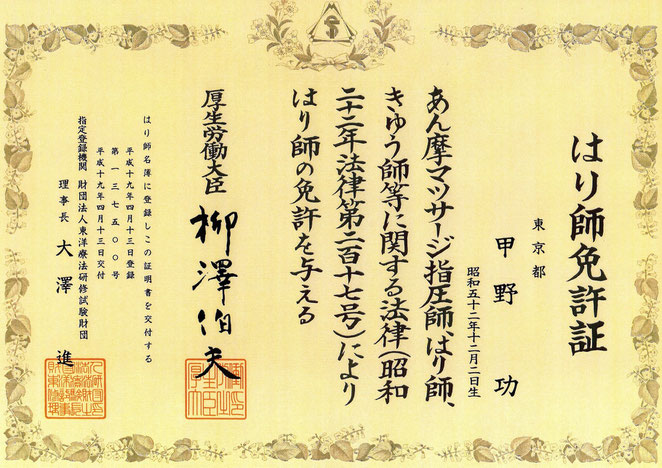 はり師免許証
東京都
甲野 功
昭和五十二年十二月二日生
あん摩マツサージ指圧師、はり師、
きゆう師等に関する法律(昭和
二十二年法律第二百十七号)により
はり師の免許を与える
厚生労働大臣 柳澤伯夫
はり師名簿に登録しこの証明書を交付する
平成十九年四月十三日登録
第一三七五〇〇号
平成十九年四月十三日交付
指定登録機関 財団法人東洋療法研修試験財団
理事長 大澤 進